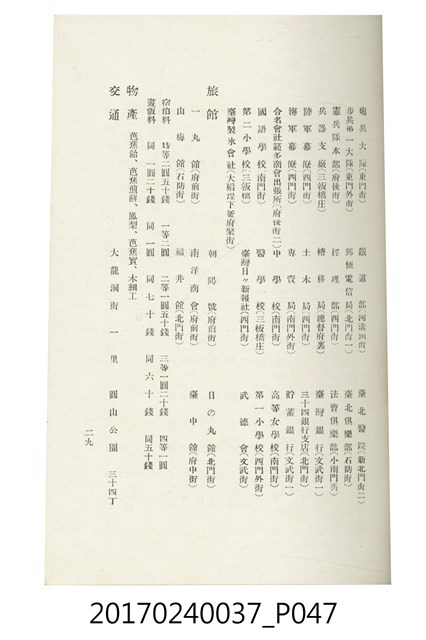 砲兵大隊(東門街) 鐵道部(河溝頭街) 臺北醫院(新北門街二)
步兵第一大隊(東門外街) 郵便電信局(北門街一) 臺北俱樂部(石防街)
憲兵隊本部(府後街) 經理部(西門街) 法曹俱樂部(小南門街)
兵器支廠(三板橋庄) 糖務局(總督府裏) 臺灣銀行(文武街一)
陸軍幕僚(西門街) 土木局(西門街) 三十四銀行支店(北門街)
海軍幕僚(西門街) 專賣局(南門外街) 貯蓄銀行(文武街一)
合名會社範多商會出張所(府後街二) 中學校(南門街) 高等女學校(南門街)
國語學校(南門街) 醫學校(三板橋庄) 第一小學校(西門外街)
第二小學校(三板橋) 臺灣日々新報社(西門街) 武德會(文武街)
臺灣製氷會社(大稻埕下奎府聚街)
旅館
一丸館(府前街) 朝陽號(府前街) 日の丸館(北門街)
山梅館(石防街) 南洋商會(府前街) 臺中館(府中街)
福井館(北門街)
宿泊料 特等二圓五十錢 一等二圓 二等一圓五十錢 三等一圓二十錢 四等一圓
晝飯料 同一圓二十錢 同一圓 同七十錢 同六十錢 同五十錢
物產 芭蕉飴、芭蕉煎餅、鳳梨、芭蕉實、木細工
交通 大龍洞街 一里 圓山公園 三十四丁
二九
20170240037_P047